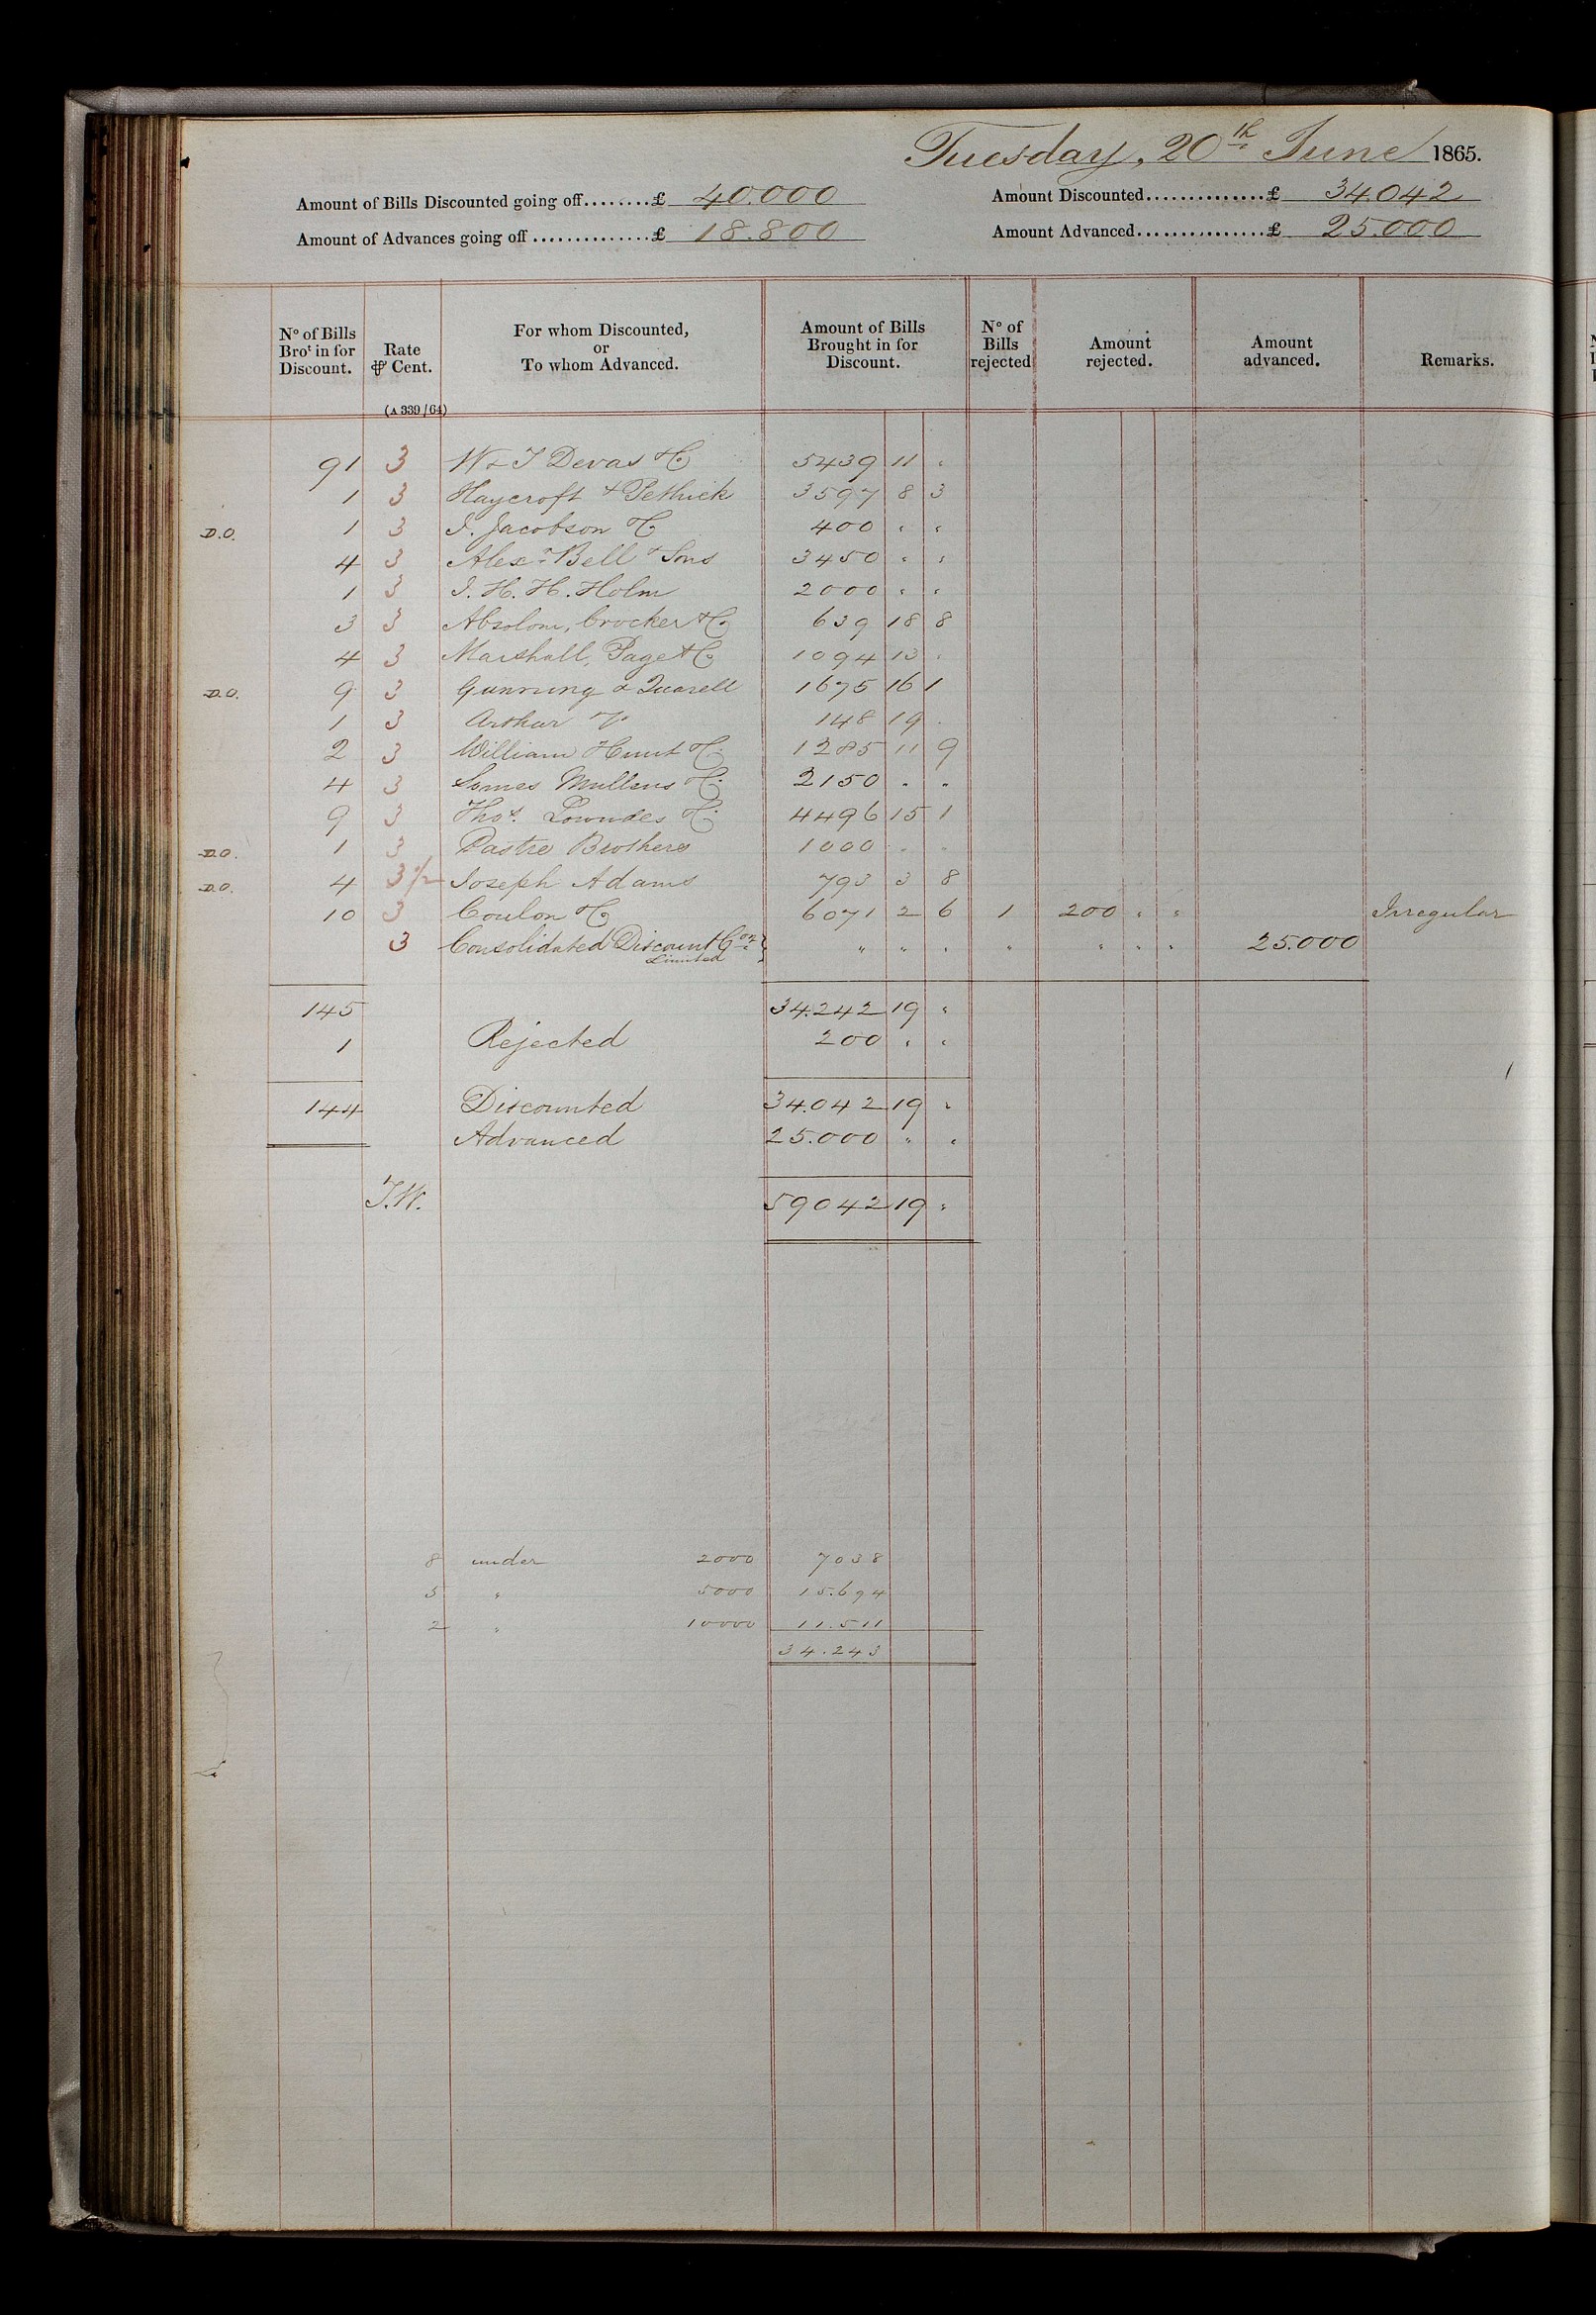 Tuesday, 20th June 1865.
Amount of Bills Discounted going off........£ 40.000 Amount Discounted..............£ 34.042
Amount of Advances going off..............£ 18.800 Amount Advanced................£ 25.000
No of Bills Brot in for Discount. Rate ⅌ Cent. For whom Discounted, or To whom Advanced. Amount of Bills Brought in for Discount. No of Bills rejected Amount rejected. Amount advanced. Remarks.
(A 339/64)
91 3 W & T Devas & Co 5439 11 "
1 3 Haycroft & Pethick 3597 8 3
D.O. 1 3 I. Jacobson & Co 400 " "
4 3 Alexr Bell & Sons 3450 " "
1 3 I. H. H. Holm 2000 " "
3 3 Absolom, Crocker & Co 639 18 8
4 3 Marshall, Page & Co 1094 13 "
D.O. 9 3 Gunning & Quarell 1675 16 1
1 3 Arthur 148 19 "
2 3 William Hunt & Co 1285 11 9
4 3 Somes Mullens & Co 2150 " "
9 3 Thos. Lowndes & Co 4496 15 1
D.O. 1 3 Pastre Brothers 1000 " "
D.O. 4 3½ Joseph Adams 793 3 8
10 3 Coulon & Co 6071 2 6 1 200 " " Irregular
3 Consolidated Discount Con Limited } " " " " " " " 25.000
145 34.242 19 "
1 Rejected 200 " "
144 Discounted 34.042 19 "
Advanced 25.000 " "
T.W. 59042 19 "
8 under 2000 7038
5 " 5000 15.694
2 " 10000 11.511
34.243